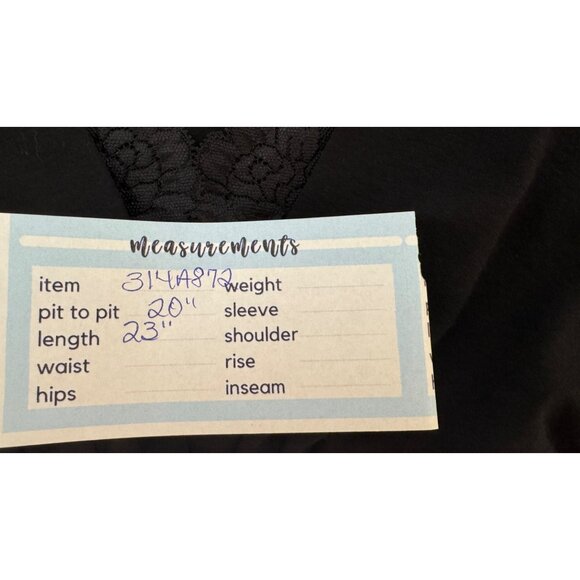 measurements
item 314A872 weight
pit to pit 20" sleeve
length 23" shoulder
waist rise
hips inseam